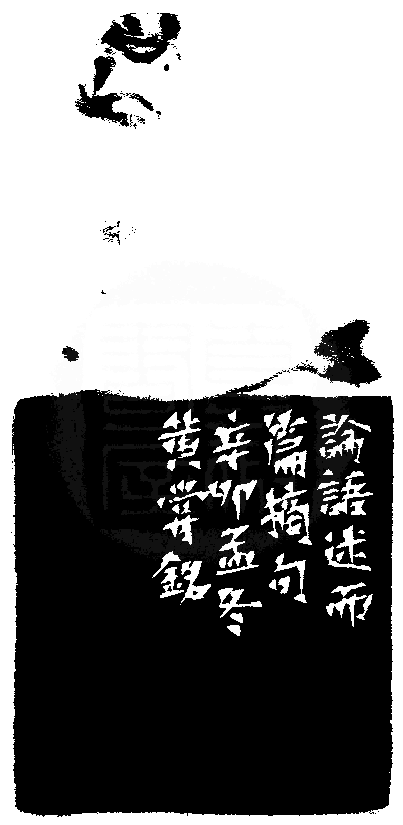 論語述而
篇摘句
辛卯孟冬
黄嘗銘